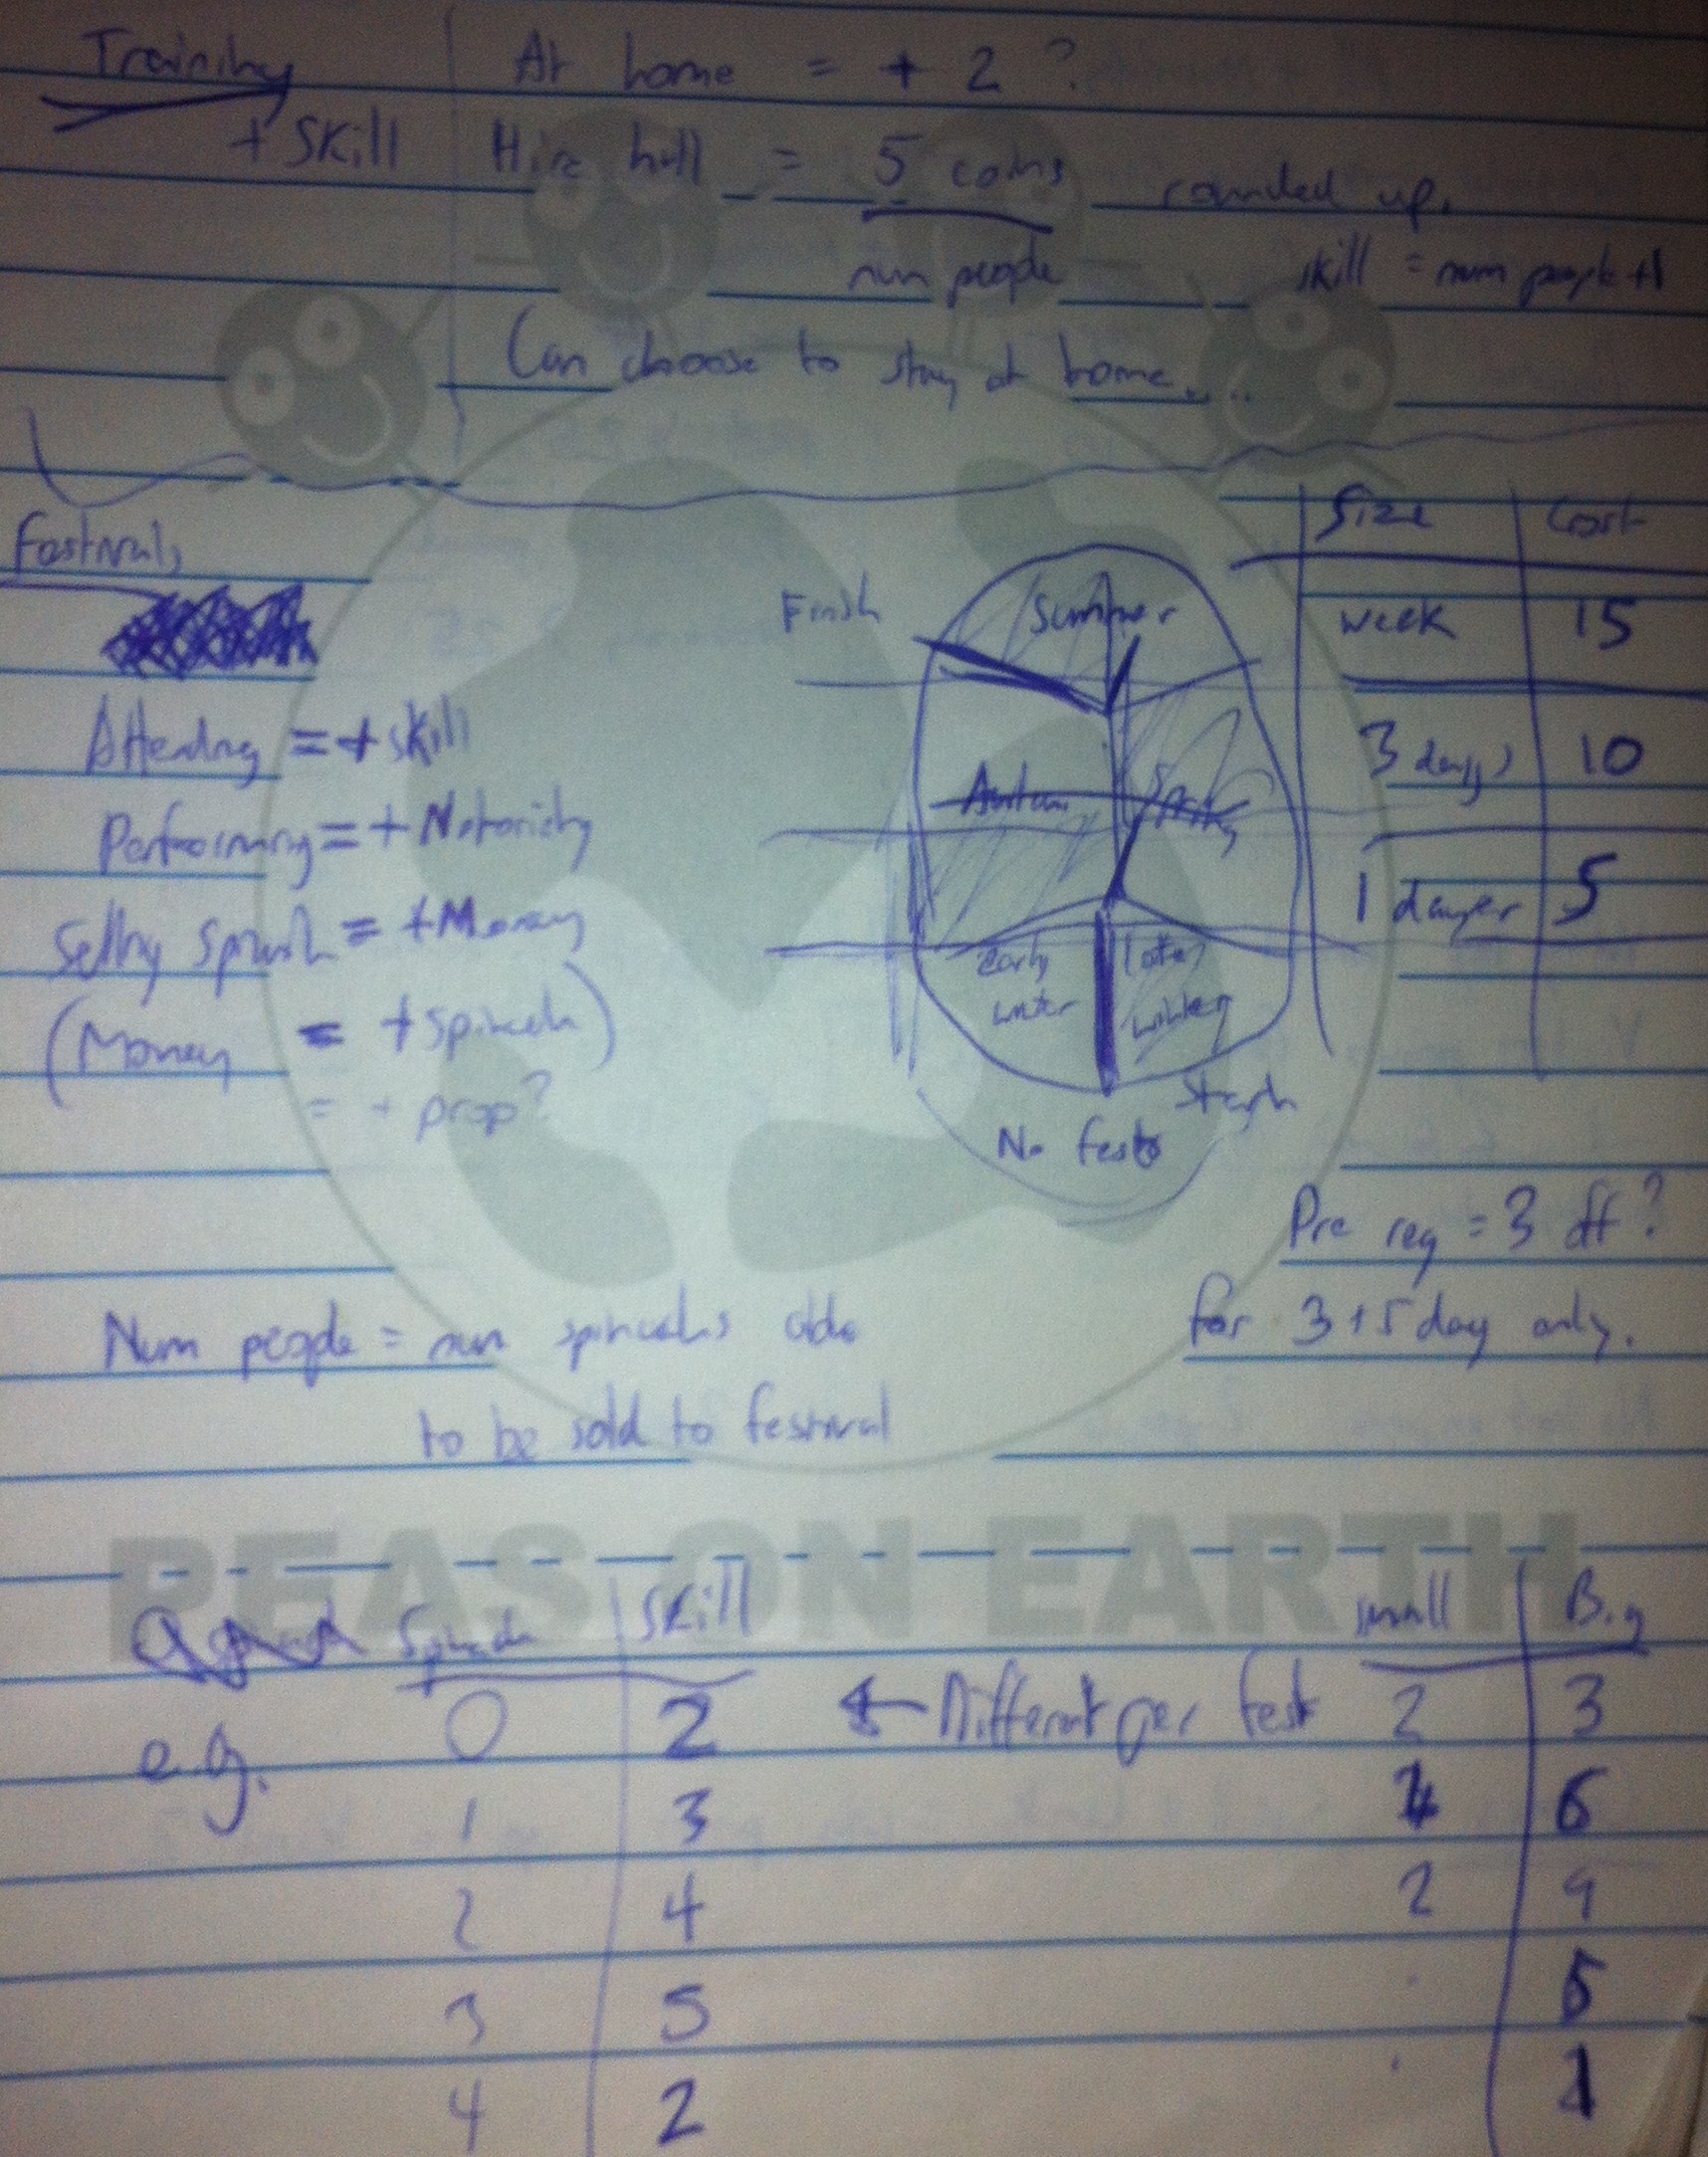 Training
+ Skill
At home = + 2 ?
Hire hall = 5 coins rounded up.
num people
skill = num people +1
Can choose to stay at home....
Festivals
Attending = + skill
Performing = + Notoriety
Selling spinach = + Money
(Money = + spinach)
= + prop?
Finish
Summer
Autumn
Spring
early winter
late winter
Start
No fests
Size Cost
week 15
3 days 10
1 dayer 5
Pre reg = 3 off?
for 3 + 5 day only.
Num people = num able
to be sold to festival
PEAS ON EARTH
Spinach Skill small Big
e.g. 0 2 ← Different per fest 2 3
1 3 6
2 4 2 9
3 5 5
4 2 1